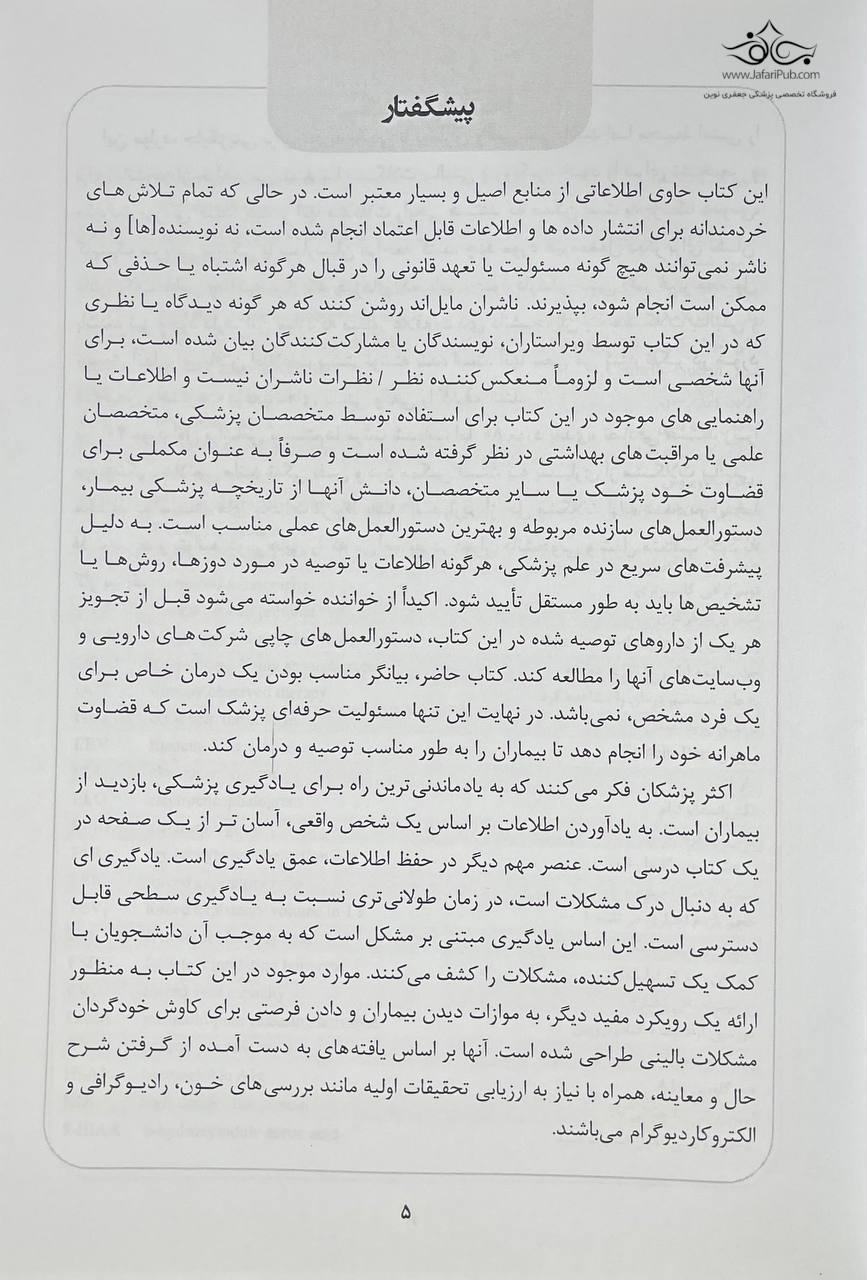 www.JafariPub.com
فروشگاه تخصصی پزشکی جعفری نوین
پیشگفتار
این کتاب حاوی اطلاعاتی از منابع اصیل و بسیار معتبر است. در حالی که تمام تلاش های
خردمندانه برای انتشار داده ها و اطلاعات قابل اعتماد انجام شده است، نه نویسنده[ها] و نه
ناشر نمی‌توانند هیچ گونه مسئولیت یا تعهد قانونی را در قبال هرگونه اشتباه یا حذفی که
ممکن است انجام شود، بپذیرند. ناشران مایل‌اند روشن کنند که هر گونه دیدگاه یا نظری
که در این کتاب توسط ویراستاران، نویسندگان یا مشارکت‌کنندگان بیان شده است، برای
آنها شخصی است و لزوماً منعکس‌کننده نظر / نظرات ناشران نیست و اطلاعات یا
راهنمایی های موجود در این کتاب برای استفاده توسط متخصصان پزشکی، متخصصان
علمی یا مراقبت‌های بهداشتی در نظر گرفته شده است و صرفاً به عنوان مکملی برای
قضاوت خود پزشک یا سایر متخصصان، دانش آنها از تاریخچه پزشکی بیمار،
دستورالعمل‌های سازنده مربوطه و بهترین دستورالعمل‌های عملی مناسب است. به دلیل
پیشرفت‌های سریع در علم پزشکی، هرگونه اطلاعات یا توصیه در مورد دوزها، روش‌ها یا
تشخیص‌ها باید به طور مستقل تأیید شود. اکیداً از خواننده خواسته می‌شود قبل از تجویز
هر یک از داروهای توصیه شده در این کتاب، دستورالعمل‌های چاپی شرکت‌های دارویی و
وب‌سایت‌های آنها را مطالعه کند. کتاب حاضر، بیانگر مناسب بودن یک درمان خاص برای
یک فرد مشخص، نمی‌باشد. در نهایت این تنها مسئولیت حرفه‌ای پزشک است که قضاوت
ماهرانه خود را انجام دهد تا بیماران را به طور مناسب توصیه و درمان کند.
اکثر پزشکان فکر می‌کنند که به یادماندنی‌ترین راه برای یادگیری پزشکی، بازدید از
بیماران است. به یادآوردن اطلاعات بر اساس یک شخص واقعی، آسان تر از یک صفحه در
یک کتاب درسی است. عنصر مهم دیگر در حفظ اطلاعات، عمق یادگیری است. یادگیری ای
که به دنبال درک مشکلات است، در زمان طولانی‌تری نسبت به یادگیری سطحی قابل
دسترسی است. این اساس یادگیری مبتنی بر مشکل است که به موجب آن دانشجویان با
کمک یک تسهیل‌کننده، مشکلات را کشف می‌کنند. موارد موجود در این کتاب به منظور
ارائه یک رویکرد مفید دیگر، به موازات دیدن بیماران و دادن فرصتی برای کاوش خودگردان
مشکلات بالینی طراحی شده است. آنها بر اساس یافته‌های به دست آمده از گرفتن شرح
حال و معاینه، همراه با نیاز به ارزیابی تحقیقات اولیه مانند بررسی‌های خون، رادیوگرافی و
الکتروکاردیوگرام می‌باشند.
۵